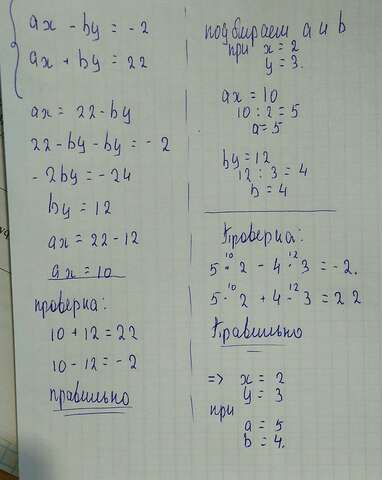 ax - by = -2
ax + by = 22
ax = 22 - by
22 - by - by = - 2
- 2by = -24
by = 12
ax = 22 - 12
ax = 10
проверка:
10 + 12 = 22
10 - 12 = -2
правильно
подбираем a и b
при x = 2
y = 3.
ax = 10
10 : 2 = 5
a = 5
by = 12
12 : 3 = 4
b = 4
Проверка:
10 12
5 · 2 - 4 · 3 = -2.
10 12
5 · 2 + 4 · 3 = 22
Правильно
=> x = 2
y = 3
при
a = 5
b = 4.